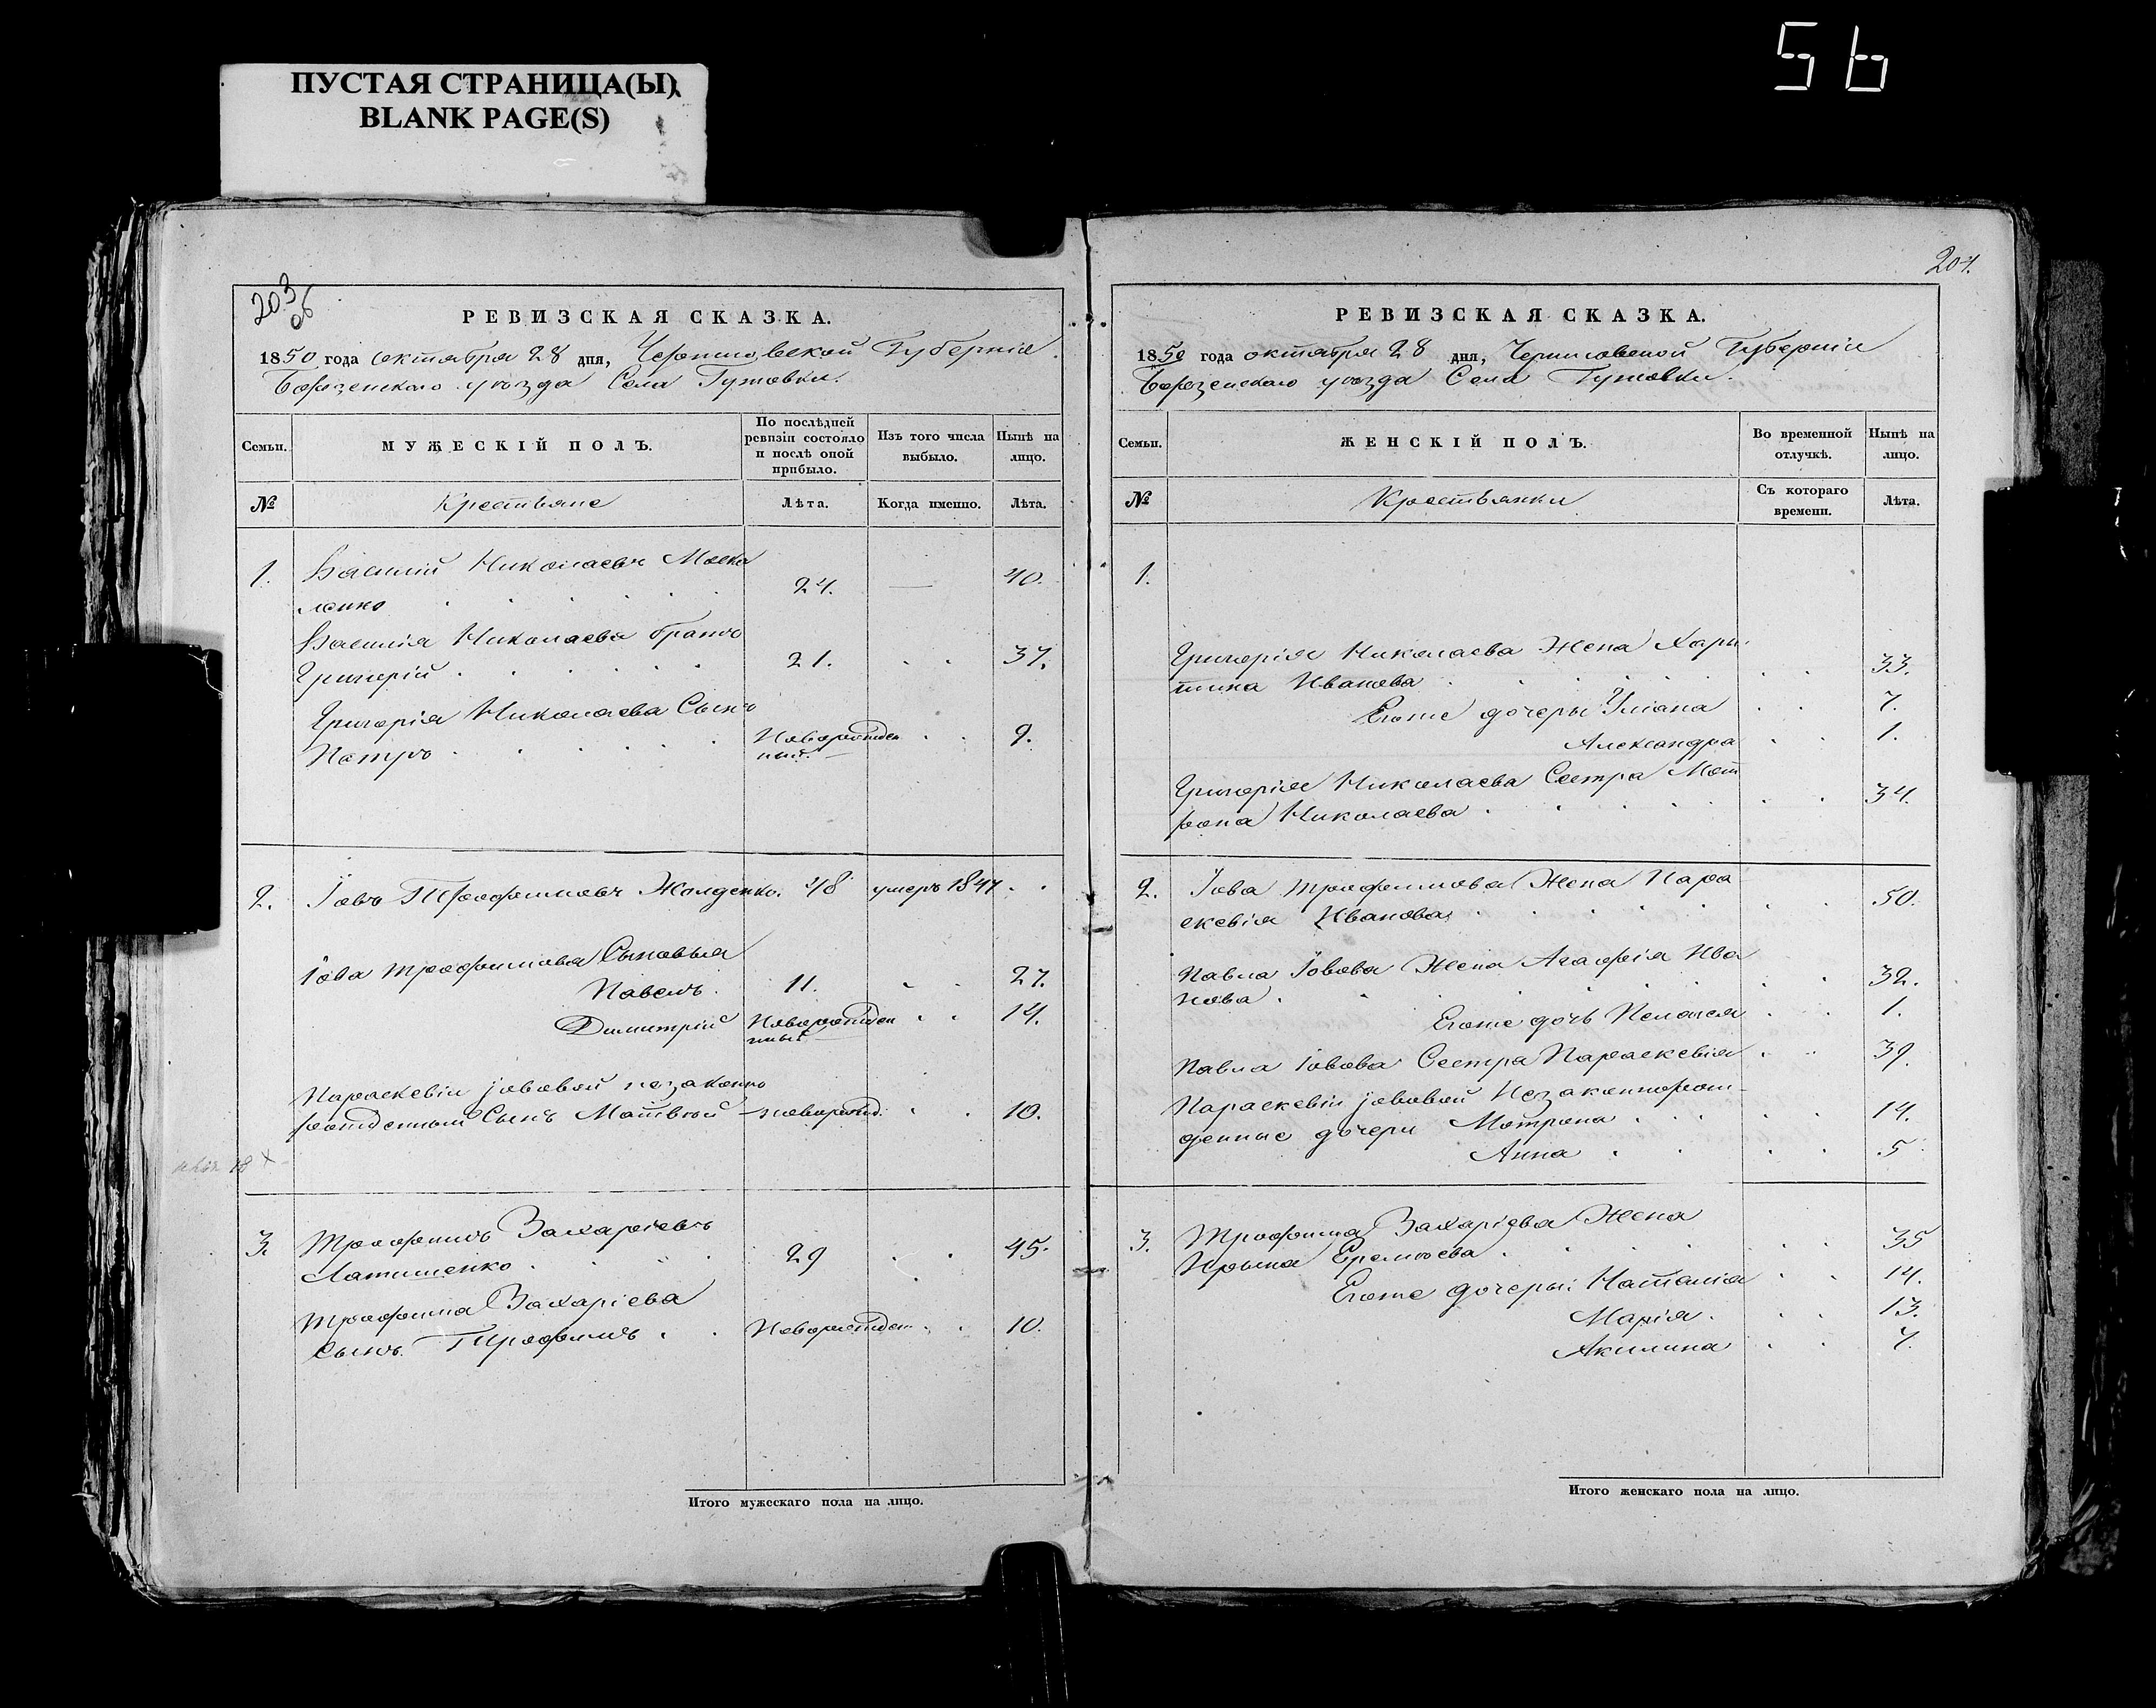 56
ПУСТАЯ СТРАНИЦА(Ы)
BLANK PAGE(S)
203
об
РЕВИЗСКАЯ СКАЗКА.
1850 года октября 28 дня, Черниговской Губерніи
Борзенскаго уѣзда Села
Семьи.
МУЖЕСКІЙ ПОЛЪ.
По послѣдней ревизіи состояло и послѣ оной прибыло.
Изъ того числа выбыло.
Нынѣ на лицо.
№
Крестьяне
Лѣта.
Когда именно.
Лѣта.
1. Василій Николаевъ Моска
ленко . . . . . 24. — 40.
Василія Николаева братъ
Григорій . . . . . 21. . . 37.
Григорія Николаева Сынъ
Петръ . . . . . Новорожден
ный . . 9.
2. Іовъ Трофимовъ Желденко. 48 умеръ 1847 . .
Іова Трофимова Сыновья
Павелъ. 11. . . 27.
Димитрій Новорожден
ный . . 14.
Параскевіи Іововой незаконно
рожденный Сынъ Матвѣй новорожд. . . 10.
3. Трофимъ Захаріевъ
Латышенко . . . 29 . . 45.
Трофима Захаріева
Сынъ Трофимъ . . Новорожден . . 10.
Итого мужескаго пола на лицо.
204.
РЕВИЗСКАЯ СКАЗКА.
1850 года октября 28 дня, Черниговской Губерніи
Борзенскаго уѣзда Села
Семьи.
ЖЕНСКІЙ ПОЛЪ.
Во временной отлучкѣ.
Нынѣ на лицо.
№
Крестьянки
Съ котораго времени.
Лѣта.
1.
Григорія Николаева Жена Хари
тина Иванова . . . . . 33.
Егоже дочери Уліана . . 7.
Александра . . 1.
Григорія Николаева Сестра Мот
рона Николаева . . . . . 34.
2. Іова Трофимова Жена Пара
скевія Иванова . . . . . 50.
Павла Іовова Жена Агафія Ива
нова . . . . . 32.
Егоже дочь Пелагея . . 1.
Павла Іовова Сестра Параскевія . . 39.
Параскевіи Іововой Незаконнорож-
денные дочери Мотрона . . . . 14.
Анна . . . . 5
3. Трофима Захаріева Жена
Ирына Еремѣева . . . . . 35
Егоже дочеры: Наталія . . 14.
Марія . . . 13.
Акилина . . 7.
Итого женскаго пола на лицо.